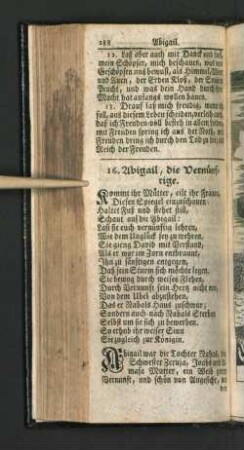 288 Abigail.
12. Laß aber auch mit Danck und
mein Schöpfer, mich beschauen, was
Geschöpfen uns bewust, als Himmel,
und Auen, der Erden Kloß, der
Pracht, und was dein Hand durch
Macht hat anfangs wollen bauen.
13. Drauf laß mich freudig, wenn
fall, aus diesem Leben scheiden,
daß ich Freuden-voll besteh in allem
mit Freuden spring ich aus der Noth,
Freuden dring ich durch den Tod zu
Reich der Freuden.
16. Abigail, die Vernünf-
tige.
Kommt ihr Mütter, eilt ihr Frauen,
Diesen Spiegel einzuschauen
Haltet Fuß und stehet still,
Schaut auf die Abigail:
Laßt sie euch vernünftig lehren,
Wie dem Unglück sey zu wehren.
Sie gieng David mit Verstand,
Als er war im Zorn entbrannt,
Ihn zu sänftigen entgegen,
Daß sein Sturm sich möchte legen.
Sie bewog durch weises Flehen,
Durch Vernunft sein Hertz
Von dem Übel abzustehen.
Das er Nabals Haus
Sondern auch nach Nabals Sterben
Selbst um sie sich zu bewerben.
So erhub ihr weiser Sinn
Sie zugleich zur Königin.
Abigail war die Tochter Nahas,
Schwester Zeruja, Joabs
masa Mutter, ein Weib
Vernunft, und schön von Angesicht,